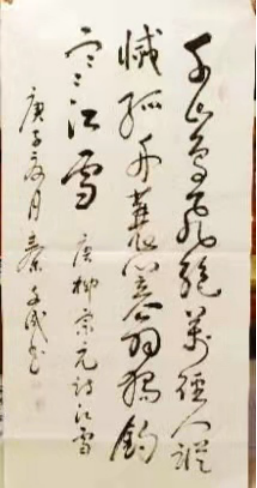 千山鸟飞絶萬径人踪
滅孤舟蓑笠翁独钓
寒江雪 唐柳宗元诗江雪
庚子夏月秦成书